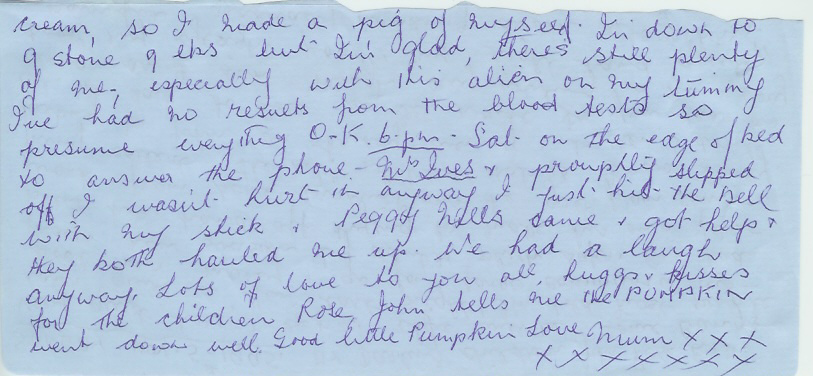 cream, so I made a pig of myself. I'm down to
9 stone 9 lbs but I'm glad, there's still plenty
of me, especially with this alien on my tummy
I've had no results from the blood tests so
presume everything O-K. 6-pm - Sat on the edge of bed
to answer the phone - Mrs Ives & promptly slipped
off I wasn't hurt in anyway I just hit the Bell
with my stick & Peggy Mills came & got help &
they both hauled me up. We had a laugh
anyway. Lots of love to you all, huggs & kisses
for the children Rose, John tells me the PUMPKIN
went down well. Good little Pumpkin Love Mum x x x
x x x x x x x